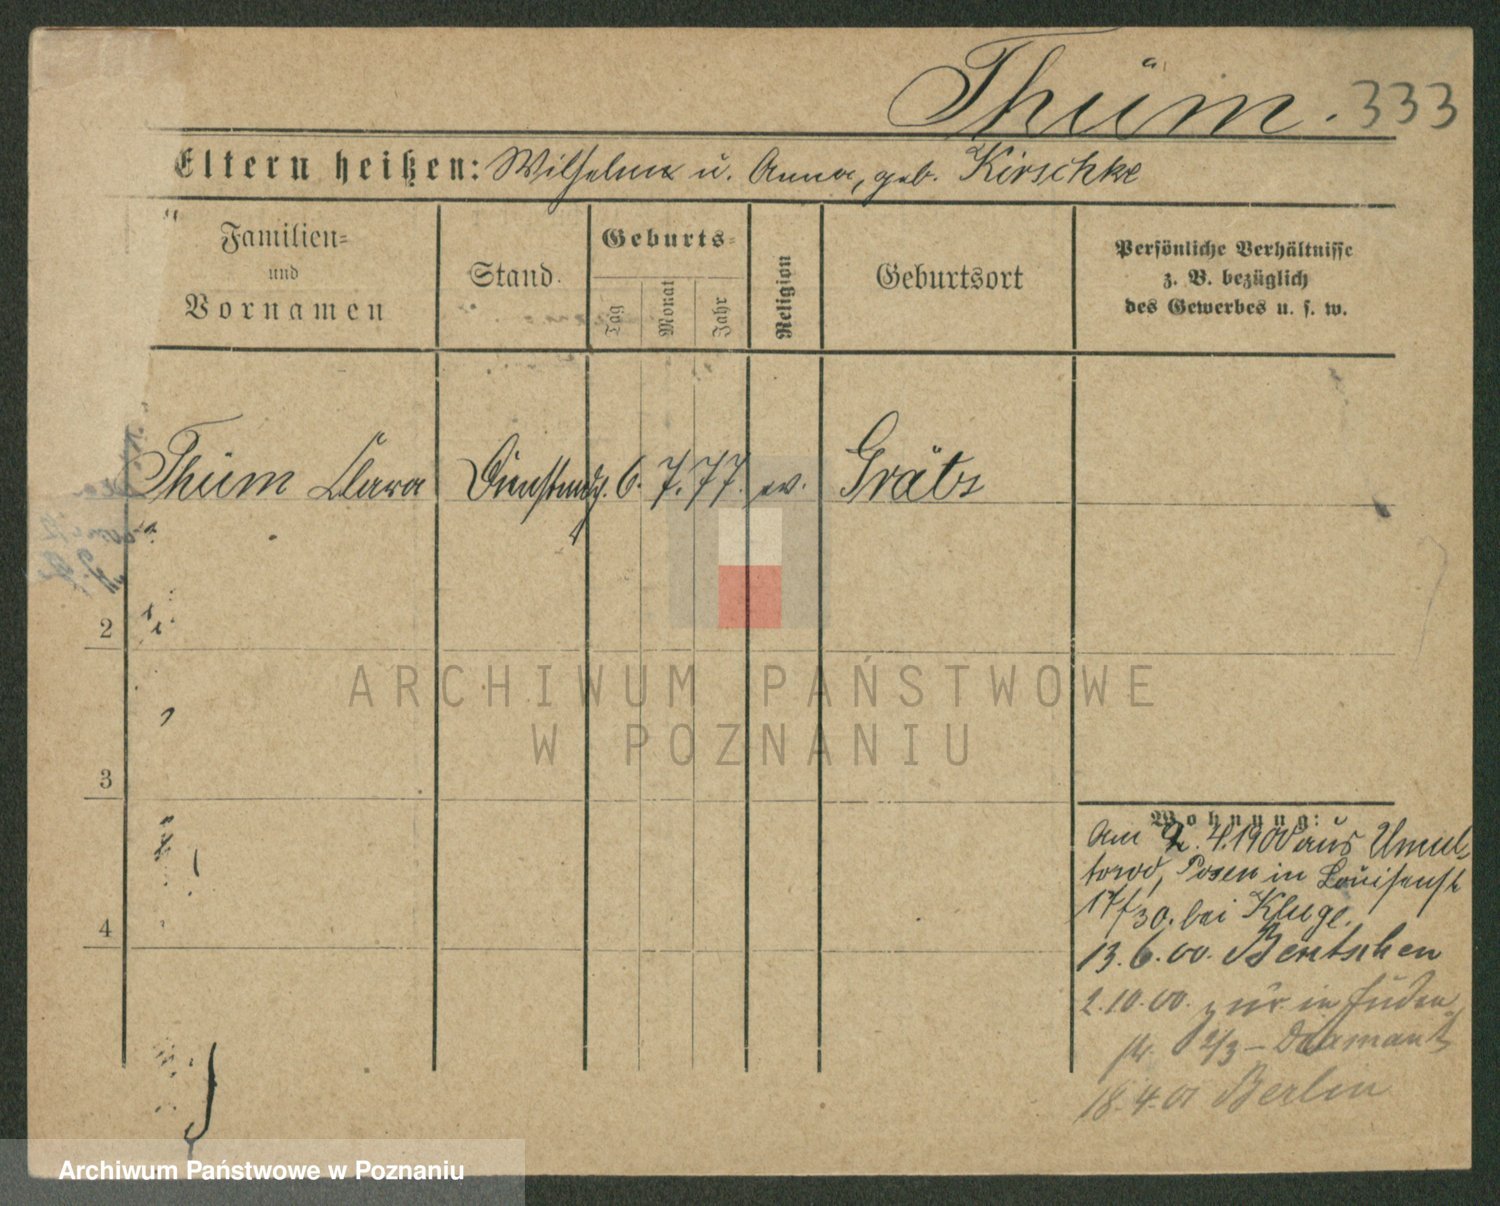 Thüm. 333
Eltern heißen: Wilhelm u. Anna, geb. Kirschke
Familien=
und
Vornamen
Stand.
Geburts=
Tag
Monat
Jahr
Religion
Geburtsort
Persönliche Verhältnisse
z. B. bezüglich
des Gewerbes u. s. w.
Thüm Clara Dienstmdch. 6. 7. 77. ev. Grätz
2
3
4
Wohnung:
Am 2. 4. 1900 aus Umul-
towo, Posen in Louisenstr
17/30. bei Kluge.
13. 6. 00. Bentschen
2. 10. 00. zur. in Juden-
str. 2/3 – Diamant
18. 4. 01 Berlin
ARCHIWUM PAŃSTWOWE
W POZNANIU
Archiwum Państwowe w Poznaniu